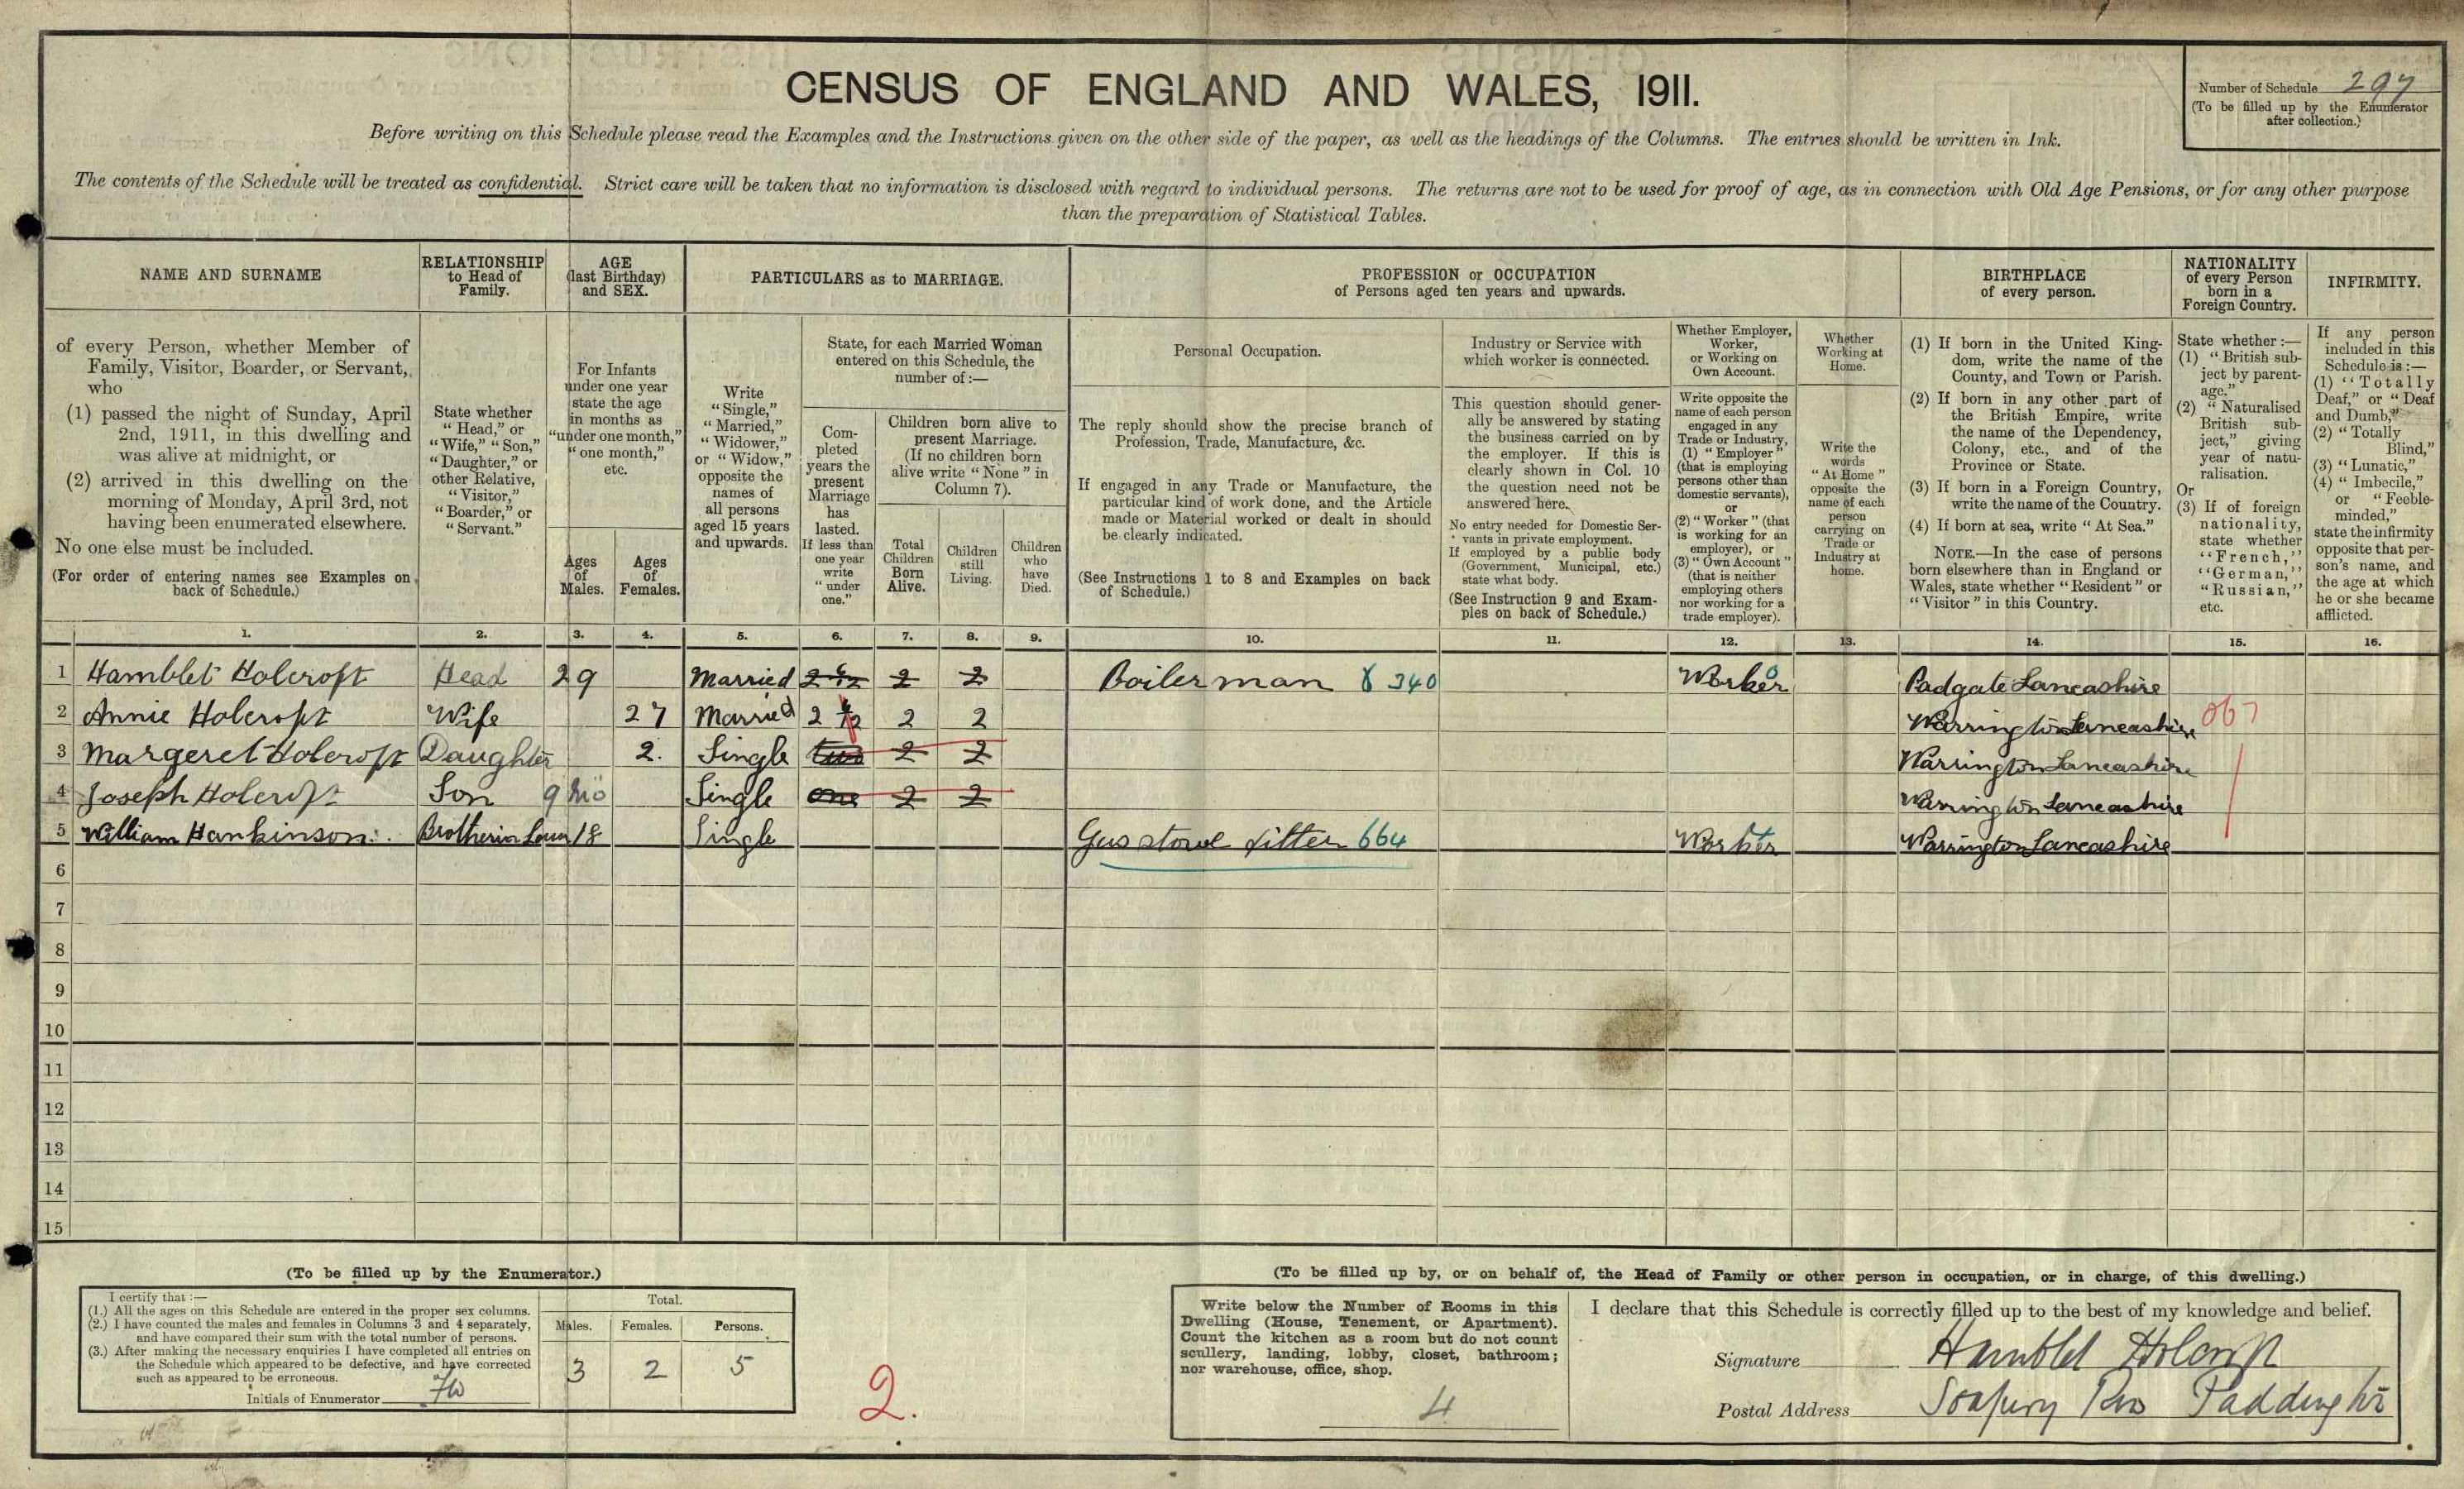 CENSUS OF ENGLAND AND WALES, 1911.
Number of Schedule 297
(To be filled up by the Enumerator
after collection.)
Before writing on this Schedule please read the Examples and the Instructions given on the other side of the paper, as well as the headings of the Columns. The entries should be written in Ink.
The contents of the Schedule will be treated as confidential. Strict care will be taken that no information is disclosed with regard to individual persons. The returns are not to be used for proof of age, as in connection with Old Age Pensions, or for any other purpose
than the preparation of Statistical Tables.
NAME AND SURNAME
of every Person, whether Member of
Family, Visitor, Boarder, or Servant,
who
(1) passed the night of Sunday, April
2nd, 1911, in this dwelling and
was alive at midnight, or
(2) arrived in this dwelling on the
morning of Monday, April 3rd, not
having been enumerated elsewhere.
No one else must be included.
(For order of entering names see Examples on
back of Schedule.)
RELATIONSHIP
to Head of
Family.
State whether
"Head," or
"Wife," "Son,"
"Daughter," or
other Relative,
"Visitor,"
"Boarder," or
"Servant."
AGE
(last Birthday)
and SEX.
For Infants
under one year
state the age
in months as
"under one month,"
"one month,"
etc.
Ages
of
Males.
Ages
of
Females.
PARTICULARS as to MARRIAGE.
Write
"Single,"
"Married,"
"Widower,"
or "Widow,"
opposite the
names of
all persons
aged 15 years
and upwards.
State, for each Married Woman
entered on this Schedule, the
number of:—
Com-
pleted
years the
present
Marriage
has
lasted.
If less than
one year
write
"under
one."
Children born alive to
present Marriage.
(If no children born
alive write "None" in
Column 7).
Total
Children
Born
Alive.
Children
still
Living.
Children
who
have
Died.
PROFESSION or OCCUPATION
of Persons aged ten years and upwards.
Personal Occupation.
The reply should show the precise branch of
Profession, Trade, Manufacture, &c.
If engaged in any Trade or Manufacture, the
particular kind of work done, and the Article
made or Material worked or dealt in should
be clearly indicated.
(See Instructions 1 to 8 and Examples on back
of Schedule.)
Industry or Service with
which worker is connected.
This question should gener-
ally be answered by stating
the business carried on by
the employer. If this is
clearly shown in Col. 10
the question need not be
answered here.
No entry needed for Domestic Ser-
vants in private employment.
If employed by a public body
(Government, Municipal, etc.)
state what body.
(See Instruction 9 and Exam-
ples on back of Schedule.)
Whether Employer,
Worker,
or Working on
Own Account.
Write opposite the
name of each person
engaged in any
Trade or Industry,
(1) "Employer"
(that is employing
persons other than
domestic servants),
or
(2) "Worker" (that
is working for an
employer), or
(3) "Own Account"
(that is neither
employing others
nor working for a
trade employer).
Whether
Working at
Home.
Write the
words
"At Home"
opposite the
name of each
person
carrying on
Trade or
Industry at
home.
BIRTHPLACE
of every person.
(1) If born in the United King-
dom, write the name of the
County, and Town or Parish.
(2) If born in any other part of
the British Empire, write
the name of the Dependency,
Colony, etc., and of the
Province or State.
(3) If born in a Foreign Country,
write the name of the Country.
(4) If born at sea, write "At Sea."
NOTE.—In the case of persons
born elsewhere than in England or
Wales, state whether "Resident" or
"Visitor" in this Country.
NATIONALITY
of every Person
born in a
Foreign Country.
State whether :—
(1) "British sub-
ject by parent-
age."
(2) "Naturalised
British sub-
ject," giving
year of natu-
ralisation.
Or
(3) If of foreign
nationality,
state whether
"French,"
"German,"
"Russian,"
etc.
INFIRMITY.
If any person
included in this
Schedule is :—
(1) "Totally
Deaf," or "Deaf
and Dumb,"
(2) "Totally
Blind,"
(3) "Lunatic,"
(4) "Imbecile,"
or "Feeble-
minded,"
state the infirmity
opposite that per-
son's name, and
the age at which
he or she became
afflicted.
1. 2. 3. 4. 5. 6. 7. 8. 9. 10. 11. 12. 13. 14. 15. 16.
1 Hamblet Holcroft Head 29 Married 2 6/12 2 2 Boilerman 8 340 Worker Padgate Lancashire
2 Annie Holcroft Wife 27 Married 2 2 2 Warrington Lancashire 067
3 Margeret Holcroft Daughter 2. Single two 2 2 Warrington Lancashire
4 Joseph Holcroft Son 9 mo Single one 2 2 Warrington Lancashire
5 William Hankinson Brother in Law 18 Single Gas stove fitter 664 Worker Warrington Lancashire
6
7
8
9
10
11
12
13
14
15
(To be filled up by the Enumerator.)
I certify that :—
(1.) All the ages on this Schedule are entered in the proper sex columns.
(2.) I have counted the males and females in Columns 3 and 4 separately,
and have compared their sum with the total number of persons.
(3.) After making the necessary enquiries I have completed all entries on
the Schedule which appeared to be defective, and have corrected
such as appeared to be erroneous.
Initials of Enumerator
Total.
Males. Females. Persons.
3 2 5
2.
(To be filled up by, or on behalf of, the Head of Family or other person in occupation, or in charge, of this dwelling.)
Write below the Number of Rooms in this
Dwelling (House, Tenement, or Apartment).
Count the kitchen as a room but do not count
scullery, landing, lobby, closet, bathroom;
nor warehouse, office, shop.
4
I declare that this Schedule is correctly filled up to the best of my knowledge and belief.
Signature Hamblet Holcroft
Postal Address Soapery Row Paddington